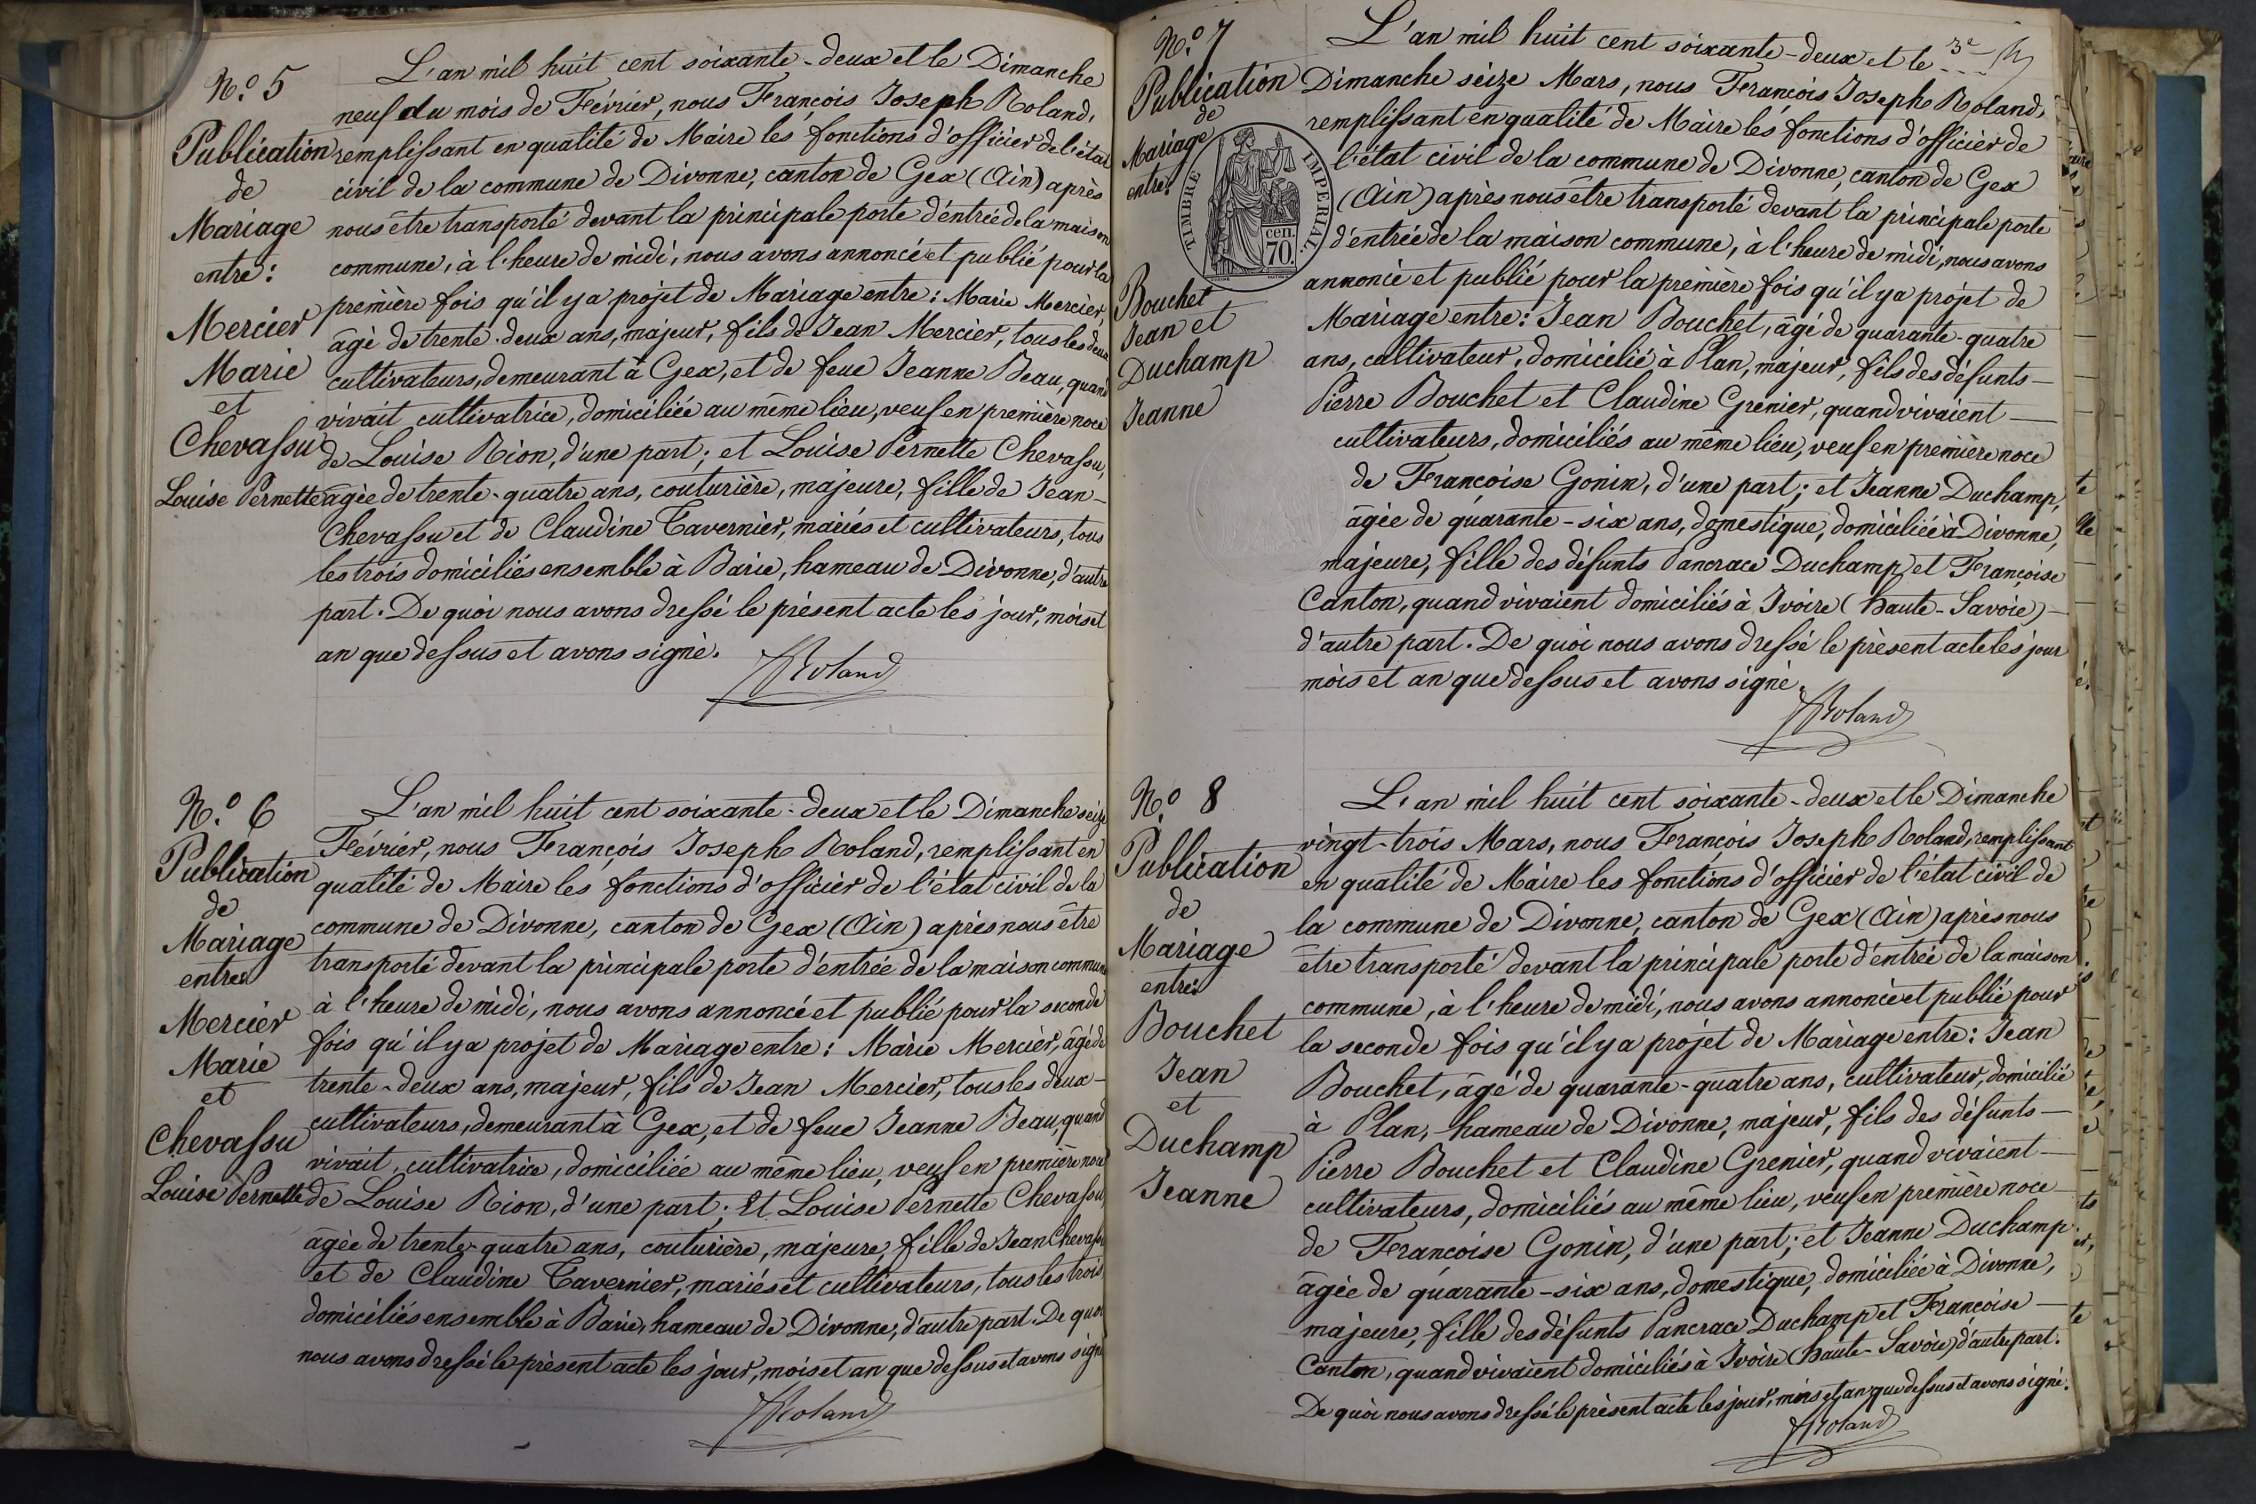 N.º 5
Publication
de
Mariage
entre:
Mercier
Marie
et
Chevassu
Louise Pernette
L'an mil huit cent soixante-deux et le Dimanche
neuf du mois de Février, nous François Joseph Roland,
remplissant en qualité de Maire les fonctions d'officier de l'état
civil de la commune de Divonne, canton de Gex (Ain) après
nous être transporté devant la principale porte d'entrée de la maison
commune, à l'heure de midi, nous avons annoncé et publié pour la
première fois qu'il y a projet de Mariage entre: Marie Mercier,
âgé de trente-deux ans, majeur, fils de Jean Mercier, tous les deux
cultivateurs, demeurant à Gex, et de feue Jeanne Beau, quand
vivait cultivatrice, domiciliée au même lieu, veuf en première noce
de Louise Rion, d'une part; et Louise Pernette Chevassu,
âgée de trente-quatre ans, couturière, majeure, fille de Jean-
Chevassu et de Claudine Tavernier, mariés et cultivateurs, tous
les trois domiciliés ensemble à Barie, hameau de Divonne, d'autre
part. De quoi nous avons dressé le présent acte les jour, mois et
an que dessus et avons signé.
Roland
N.º 6
Publication
de
Mariage
entre:
Mercier
Marie
et
Chevassu
Louise Pernette
L'an mil huit cent soixante-deux et le Dimanche seize
Février, nous François Joseph Roland, remplissant en
qualité de Maire les fonctions d'officier de l'état civil de la
commune de Divonne, canton de Gex (Ain) après nous être
transporté devant la principale porte d'entrée de la maison commune
à l'heure de midi, nous avons annoncé et publié pour la seconde
fois qu'il y a projet de Mariage entre: Marie Mercier, âgé de
trente-deux ans, majeur, fils de Jean Mercier, tous les deux-
cultivateurs, demeurant à Gex, et de feue Jeanne Beau, quand
vivait, cultivatrice, domiciliée au même lieu, veuf en première noce
de Louise Rion, d'une part; Et Louise Pernette Chevassu,
âgée de trente-quatre ans, couturière, majeure, fille de Jean Chevassu
et de Claudine Tavernier, mariés et cultivateurs, tous les trois
domiciliés ensemble à Barie, hameau de Divonne, d'autre part. De quoi
nous avons dressé le présent acte les jour, mois et an que dessus et avons signé
Roland
3e
N.º 7
Publication
de
Mariage
entre:
TIMBRE IMPERIAL.
cen.
70.
Bouchet
Jean et
Duchamp
Jeanne
L'an mil huit cent soixante-deux et le
Dimanche seize Mars, nous François Joseph Roland,
remplissant en qualité de Maire les fonctions d'officier de
l'état civil de la commune de Divonne, canton de Gex
(Ain) après nous être transporté devant la principale porte
d'entrée de la maison commune, à l'heure de midi, nous avons
annoncé et publié pour la première fois qu'il y a projet de
Mariage entre: Jean Bouchet, âgé de quarante-quatre
ans, cultivateur, domicilié à Plan, majeur, fils des défunts-
Pierre Bouchet et Claudine Grenier, quand vivaient
cultivateurs, domiciliés au même lieu, veuf en première noce
de Françoise Gonin, d'une part; et Jeanne Duchamp,
âgée de quarante-six ans, domestique, domiciliée à Divonne,
majeure, fille des défunts Pancrace Duchamp et Françoise
Canton, quand vivaient domiciliés à Ivoire (haute-Savoie)-
d'autre part. De quoi nous avons dressé le présent acte les jour
mois et an que dessus et avons signé.
Roland
N.º 8
Publication
de
Mariage
entre:
Bouchet
Jean
et
Duchamp
Jeanne
L'an mil huit cent soixante-deux et le Dimanche
vingt-trois Mars, nous François Joseph Roland, remplissant
en qualité de Maire les fonctions d'officier de l'état civil de
la commune de Divonne, canton de Gex (Ain) après nous
être transporté devant la principale porte d'entrée de la maison
commune, à l'heure de midi, nous avons annoncé et publié pour
la seconde fois qu'il y a projet de Mariage entre: Jean
Bouchet, âgé de quarante-quatre ans, cultivateur, domicilié
à Plan, hameau de Divonne, majeur, fils des défunts-
Pierre Bouchet et Claudine Grenier, quand vivaient-
cultivateurs, domiciliés au même lieu, veuf en première noce
de Françoise Gonin, d'une part; et Jeanne Duchamp
âgée de quarante-six ans, domestique, domiciliée à Divonne,
majeure, fille des défunts Pancrace Duchamp et Françoise-
Canton, quand vivaient domiciliés à Ivoire (haute-Savoie) d'autre part.
De quoi nous avons dressé le présent acte les jour, mois et an que dessus et avons signé.
Roland